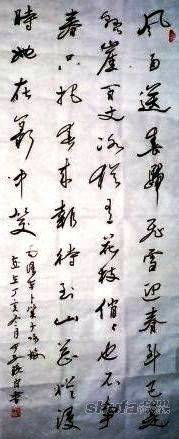 风雨送春归飞雪迎春到已是
悬崖百丈冰犹有花枝俏俏也不争
春只把春来报待到山花烂漫
时她在丛中笑
毛泽东卜算子咏梅
丁亥冬月